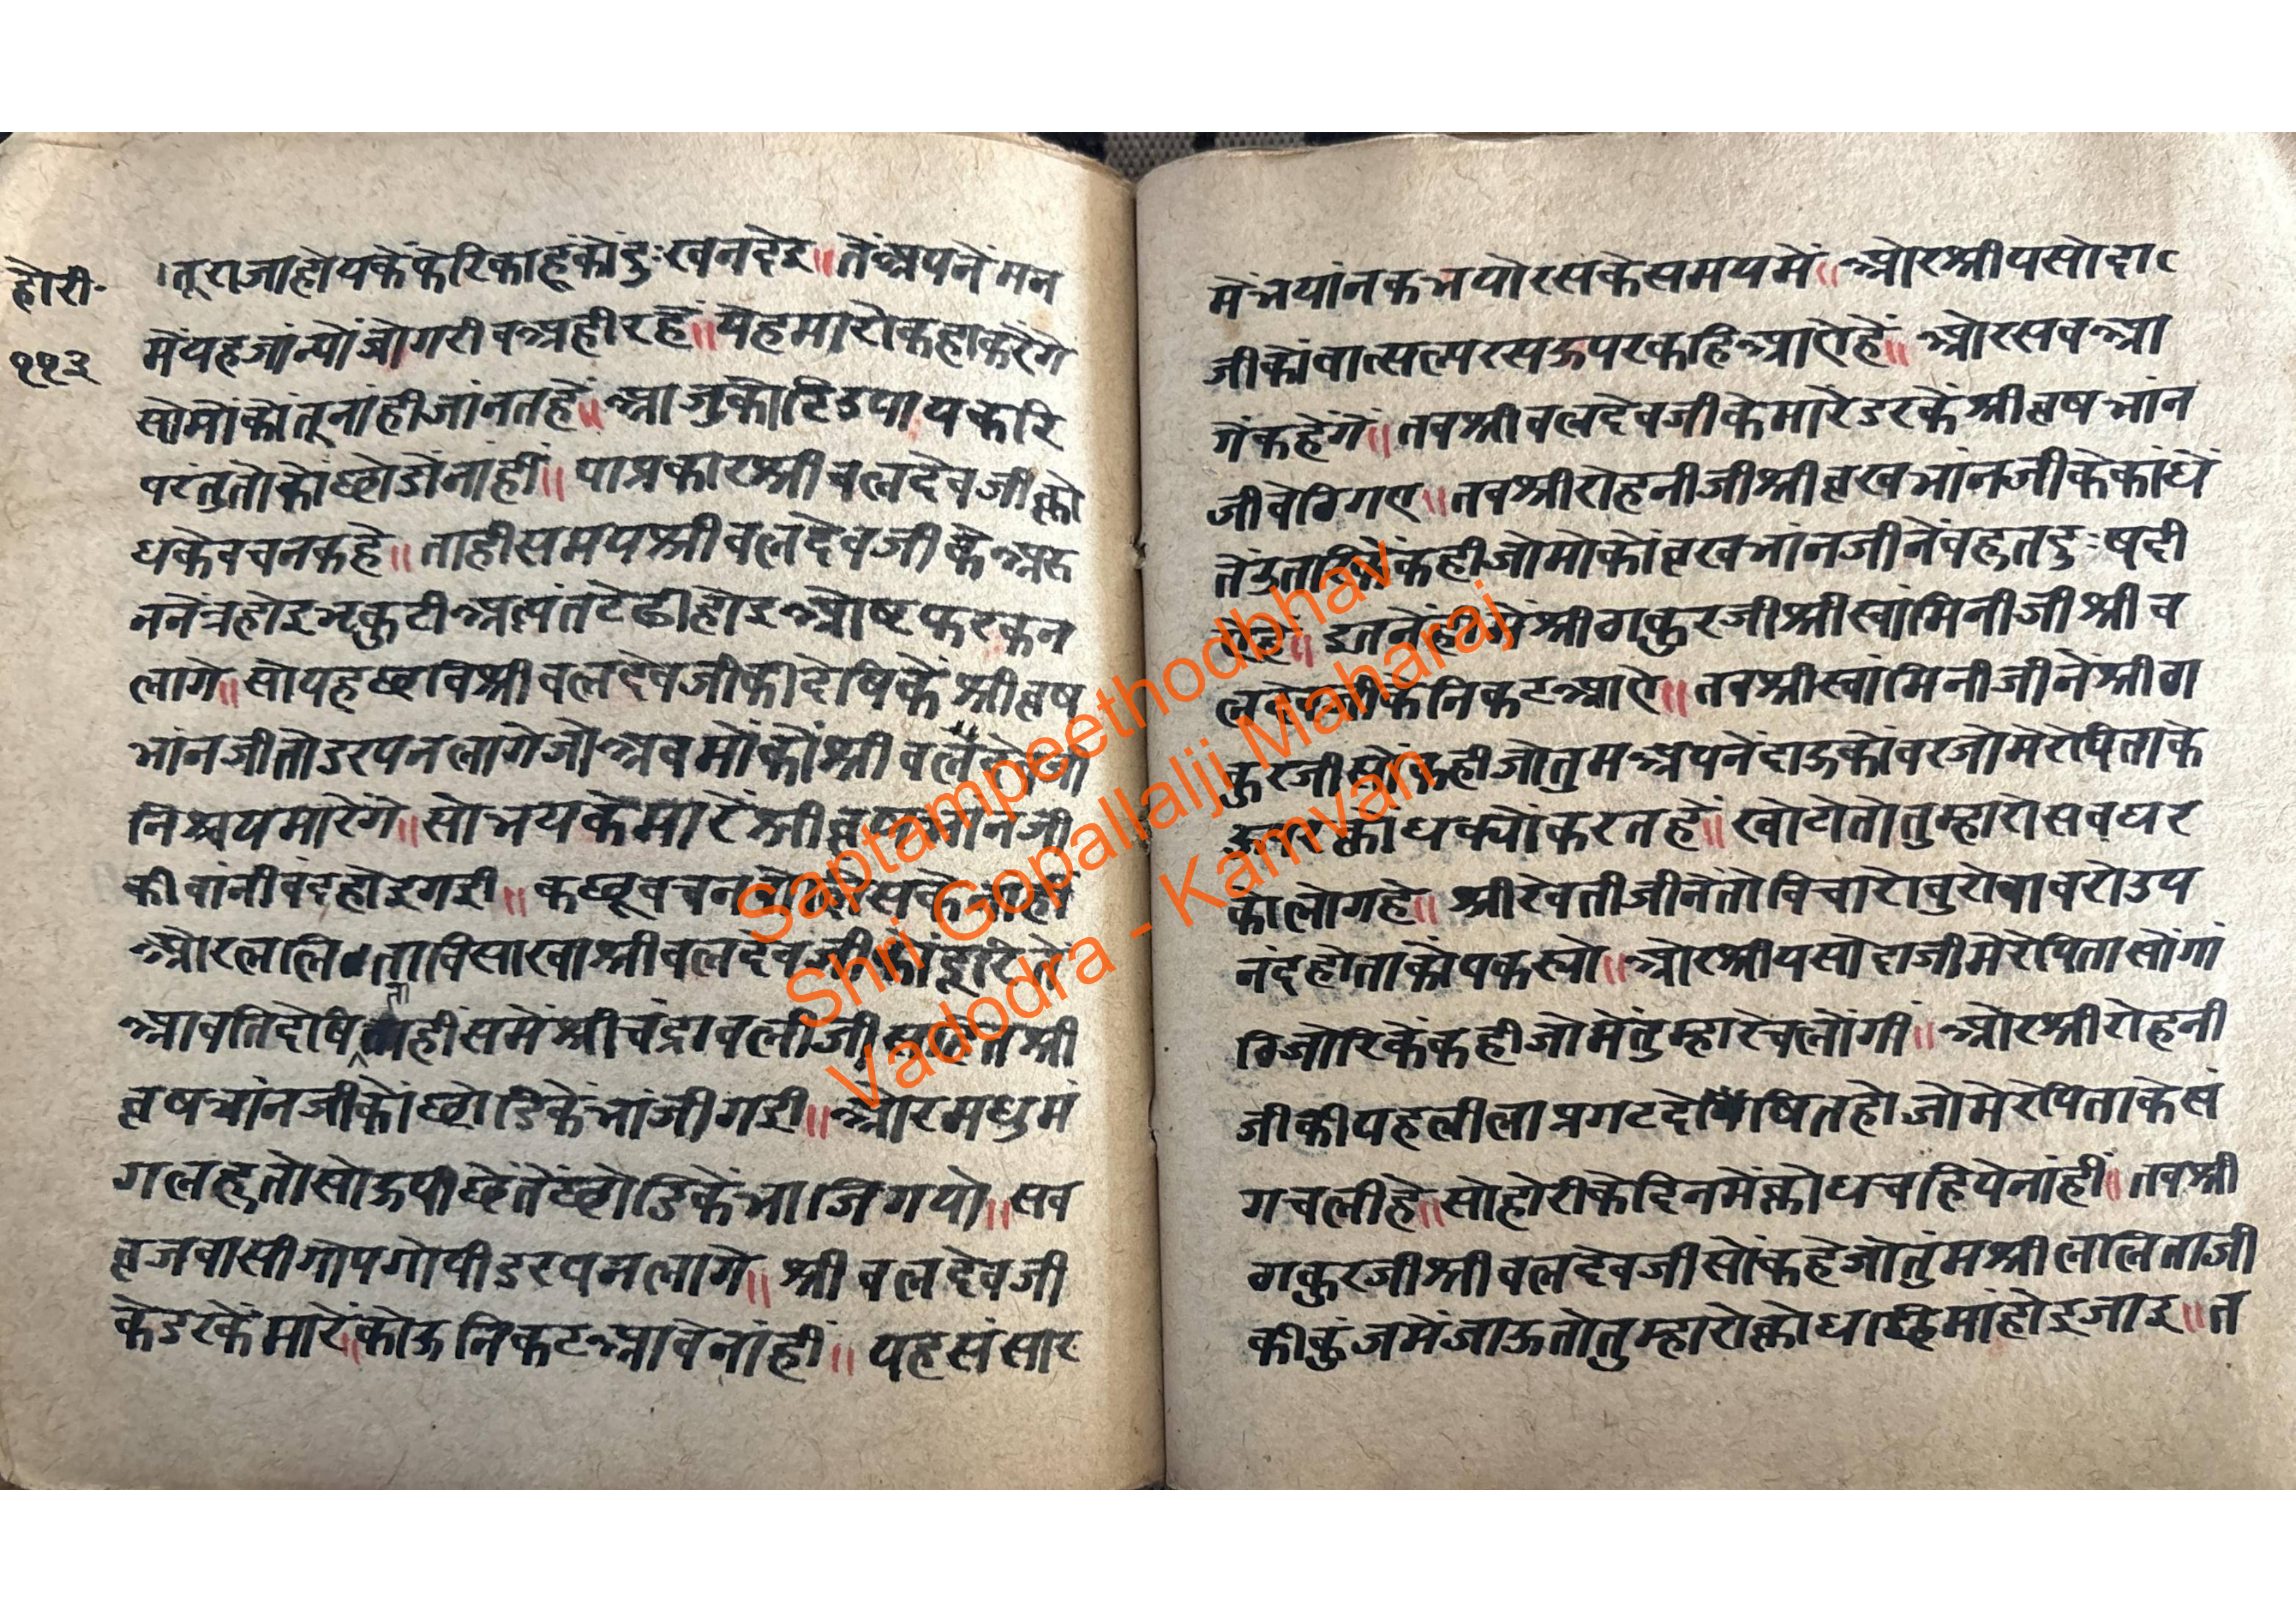 होरी॰
११३
।तूराजाहोयकेंफेरिकाहूकोंदुःखनदेइ॥तेंअपनेंमन
मेंयहजांन्योंजोगरीबअहीरहें॥येहमारोकहाकरेंगे
सोमोंकोंतूनांहीजांनतहें॥आजुकोटिउपायकरि
परंतुतोकोंछोडोंनाहीं॥याप्रकारश्रीबलदेवजीक्रो
धकेवचनकहे॥ताहीसमयश्रीबलदेवजीकेअरु
ननेंत्रहोइभ्रकुटीअत्यंतटेढीहोइओष्टफरकन
लागे॥सोयहछविश्रीबलदेवजीकीदेषिकेंश्रीव्रष
भांनजीतोडरपनलागेजोअबमोंकोंश्रीबल
निश्चयमारेंगे॥सोभयकेमारेंश्रीव्रषभांनजी
कीवांनीबंदहोइगई॥कछूवचन
ओरललिताविसाखाश्रीबलदेवजीकोंदूरिते
आवतिदेषिताहीसमेंश्रीचंद्रावलीजी श्री
व्रषभांनजीकोंछोडिकेंभांजीगई॥ओरमधुमं
गलहतोसोऊपीछेंतेंछोडिकेंभाजिगयो॥सब
व्रजवासीगोपगोपीडरपनलागे॥श्रीबलदेवजी
केडरकेंमारें॥कोऊनिकटआवेनांहीं॥यहसंसार
मेंभयांनकभयोरसकेसमयमें॥ओरश्रीयसोदा
जीकोंवात्सल्परसऊपरकहिआऐहें॥ओरसबआ
गेंकहेंगे॥तबश्रीबलदेवजीकेमारेंडरकेंश्रीव्रषभांन
जीबेठिगए॥तबश्रीरोहनीजीश्रीव्रखभांनजीकेकांधें
तेंउतरिकेंकहीजोमोकोंव्रखभांनजीनेंबहतदुःषदी
॥इतनेंहीमेंश्रीठाकुरजीश्रीस्वांमिनीजीश्रीब
लदेवजीकेनिकटआऐ॥तबश्रीस्वांमिनीजीनेंश्रीठा
कुरजीसोंकहीजोतुमअपनेंदाऊकोंबरजोमेरेपिताके
ऊपरक्रोधक्योंकरतहें॥खोटोतोतुम्हारोसबघर
कोलोगहे॥श्रीरेवतीजीनेंतोविचारोबुरोबाबरोउप
नंदहोताकोंपकस्यो॥ओरश्रीयसोदाजीमेरेपितासोंगां
ठिजोरिकेंकहीजोमेंतुम्हारेचलोंगी॥ओरश्रीरोहनी
जीकीयहलीलाप्रगटदेषितहोजोमेरेपिताकेसं
गचलीहे॥सोहोरीकेदिनमेंक्रोधचहियेनांहीं॥तबश्री
ठाकुरजीश्रीबलदेवजीसोंकहेजोतुंमश्रीललिताजी
कीकुंजमेंजाऊतोतुम्हारोक्रोधछिमांहोइजाइ॥त
Saptampeethodbhav
Shri Gopallalji Maharaj
Vadodra - Kamvan